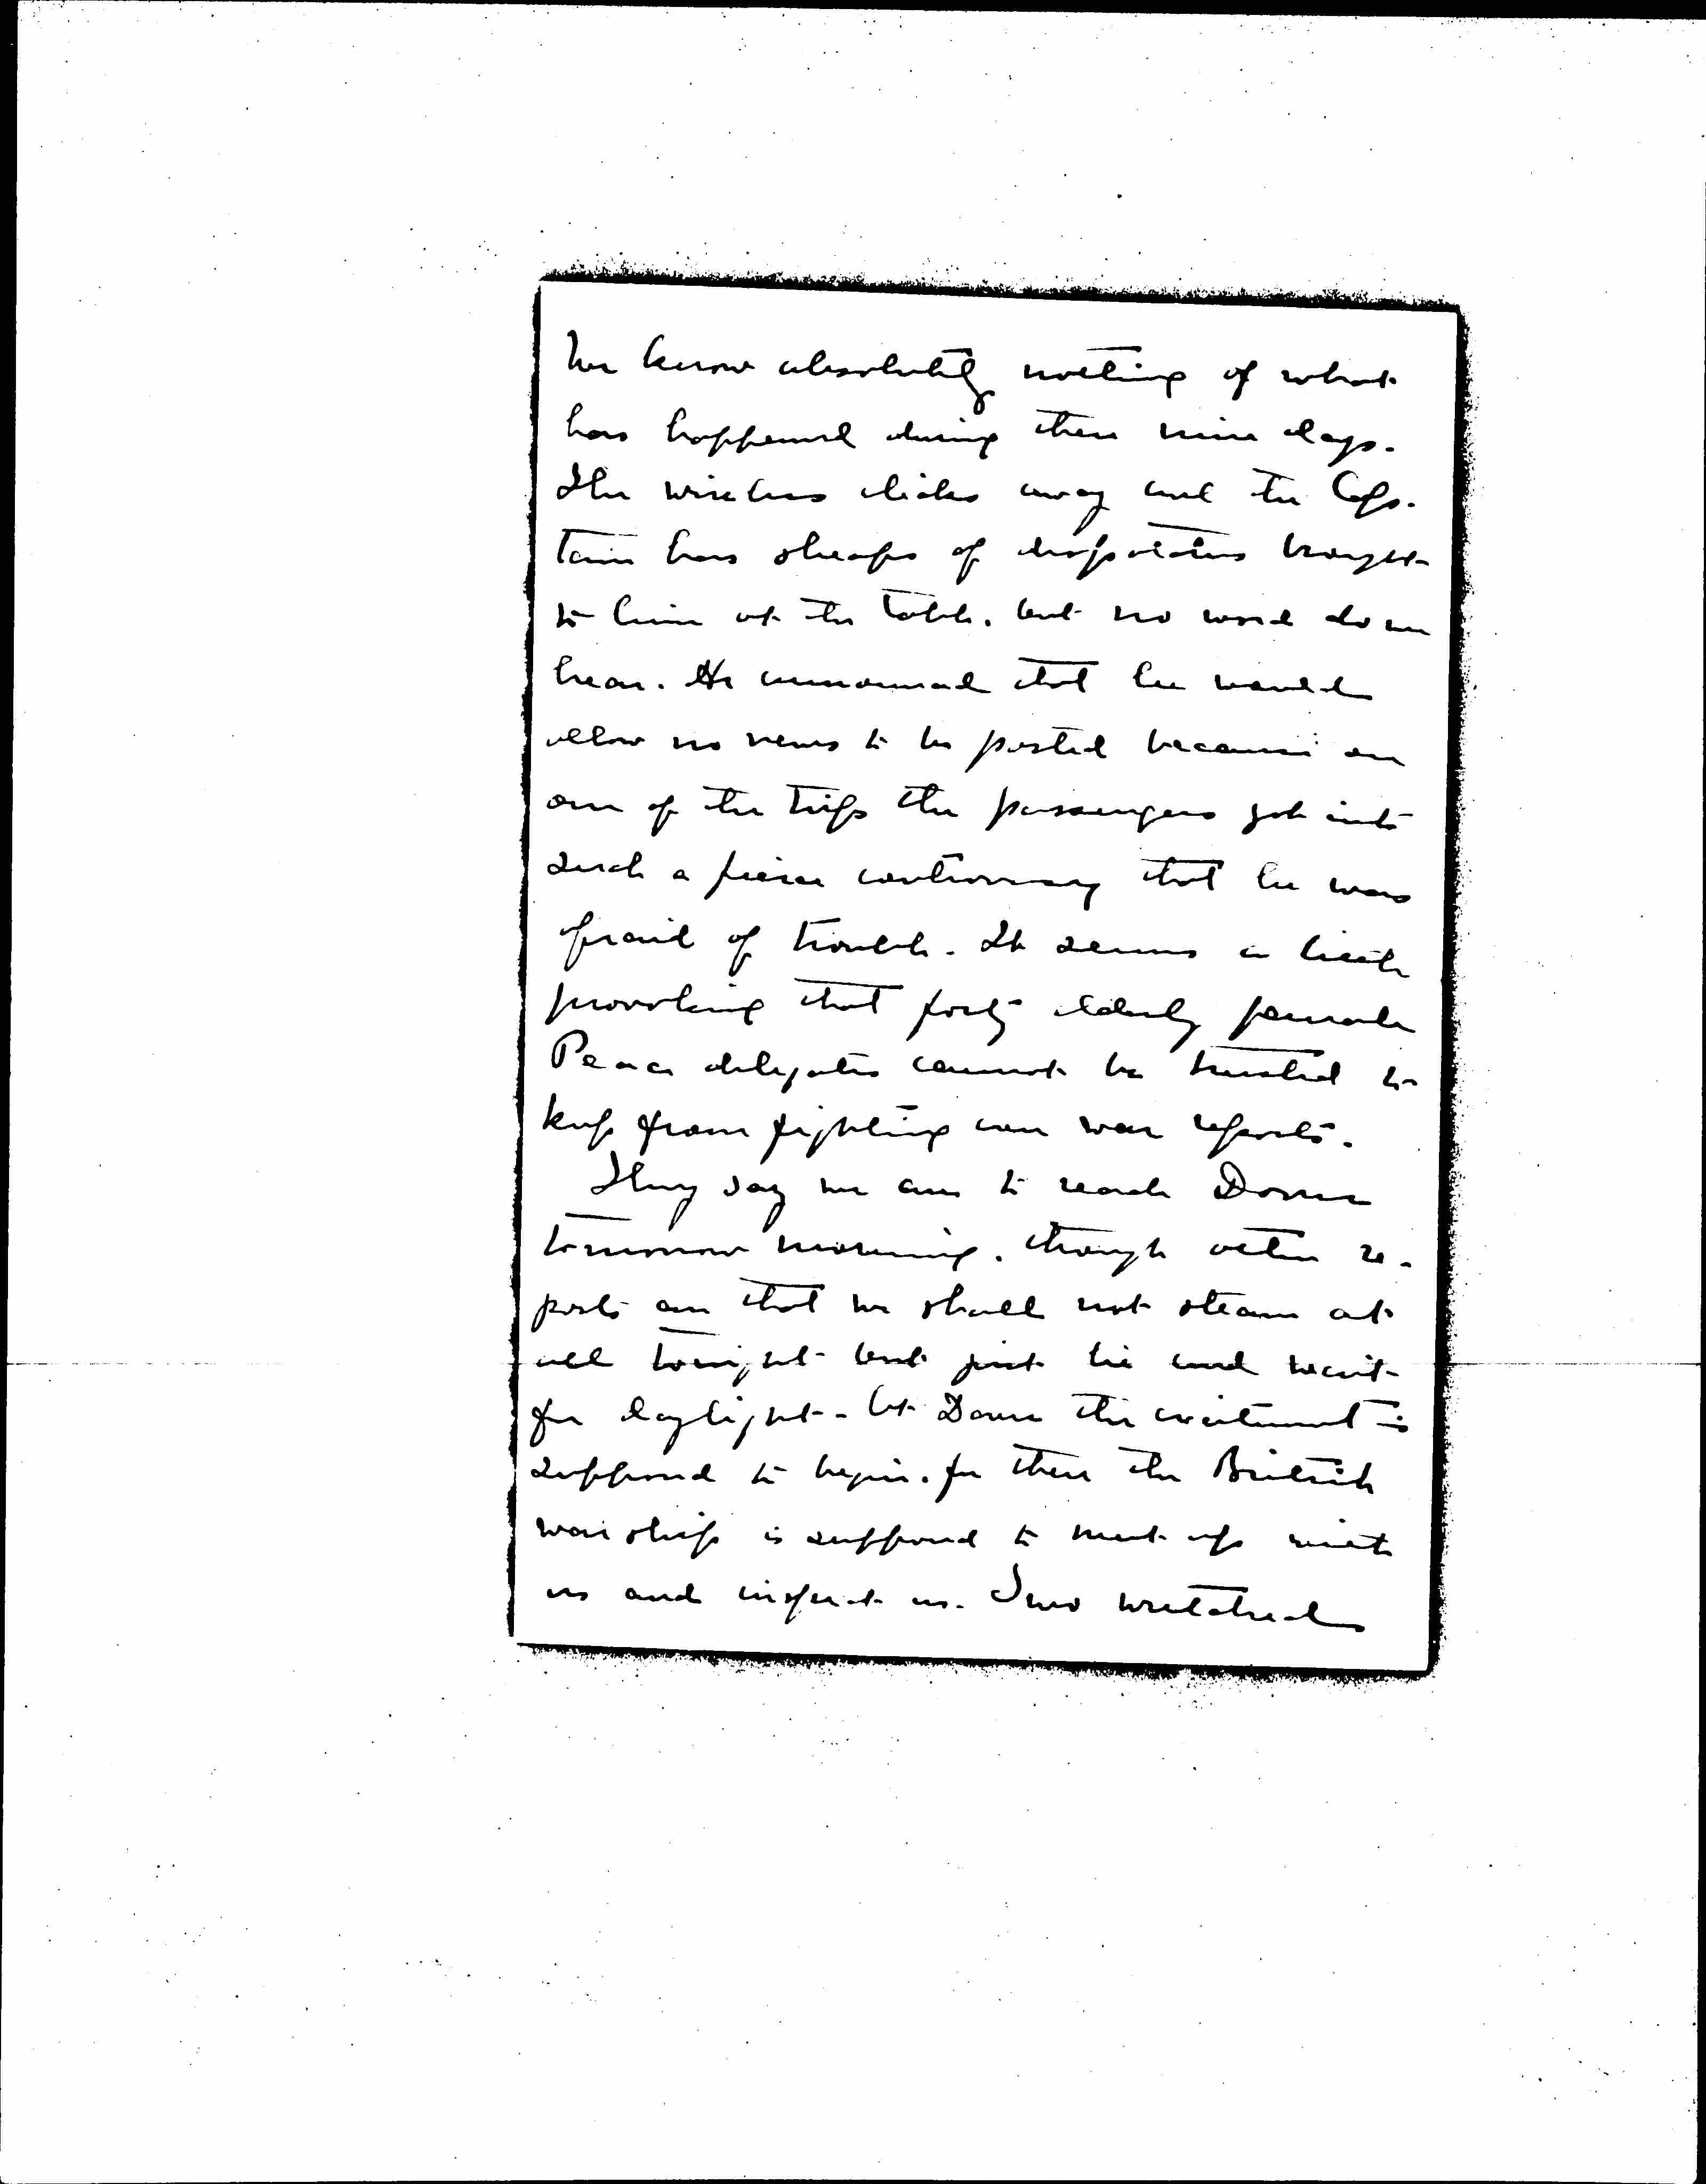 We know absolutely nothing of what
has happened during these nine days.
The wireless clicks away and the Cap-
tain has sheafs of dispatches brought
to him at the table, but no word do we
hear. He announced that he would
allow no news to be posted because on
one of the trips the passengers got into
such a fierce controversy that he was
afraid of trouble. It seems a little
provoking that forty elderly female
Peace delegates cannot be trusted to
keep from fighting over war reports.
They say we are to reach Dover
tomorrow morning, though other re-
ports are that we shall not steam at
all tonight but just lie and wait
for daylight - At Dover the excitement is
supposed to begin, for there the British
war ship is supposed to meet up with
us and inspect us. Two wretched